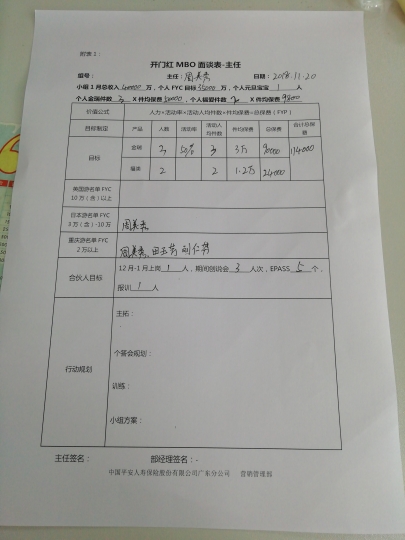 附表1：
开门红MBO面谈表-主任
组号： 主任：周美秀 日期：2018.11.20
小组1月总收入40000万，个人FYC目标35000万，个人元旦宝宝1人
个人金瑞件数3X件均保费50000，个人福爱件数2X件均保费9800
价值公式 人力×活动率×活动人均件数×件均保费=总保费（FYP）
目标制定 产品 人数 活动率 活动人均件数 件均保费 总保费 合计总保额
目标 金瑞 3 50% 3 3万 90000 114000
福类 2 2 1.2万 24000
英国游名单FYC
10万（含）以上
日本游名单FYC
3万（含）-10万 周美秀
重庆游名单FYC
2万以上 周美秀
合伙人目标 12月-1月上岗1人，期间创说会3人次，EPASS5个，
报训1人
行动规划
主拓：
个答会规划：
训练：
小组方案：
主任签名： 部经理签名：
中国平安人寿保险股份有限公司广东分公司 营销管理部